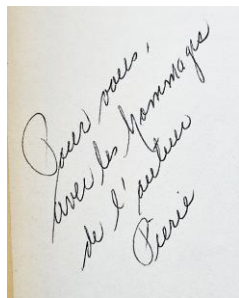 Pour vous,
avec les hommages
de l'auteur
Pierre